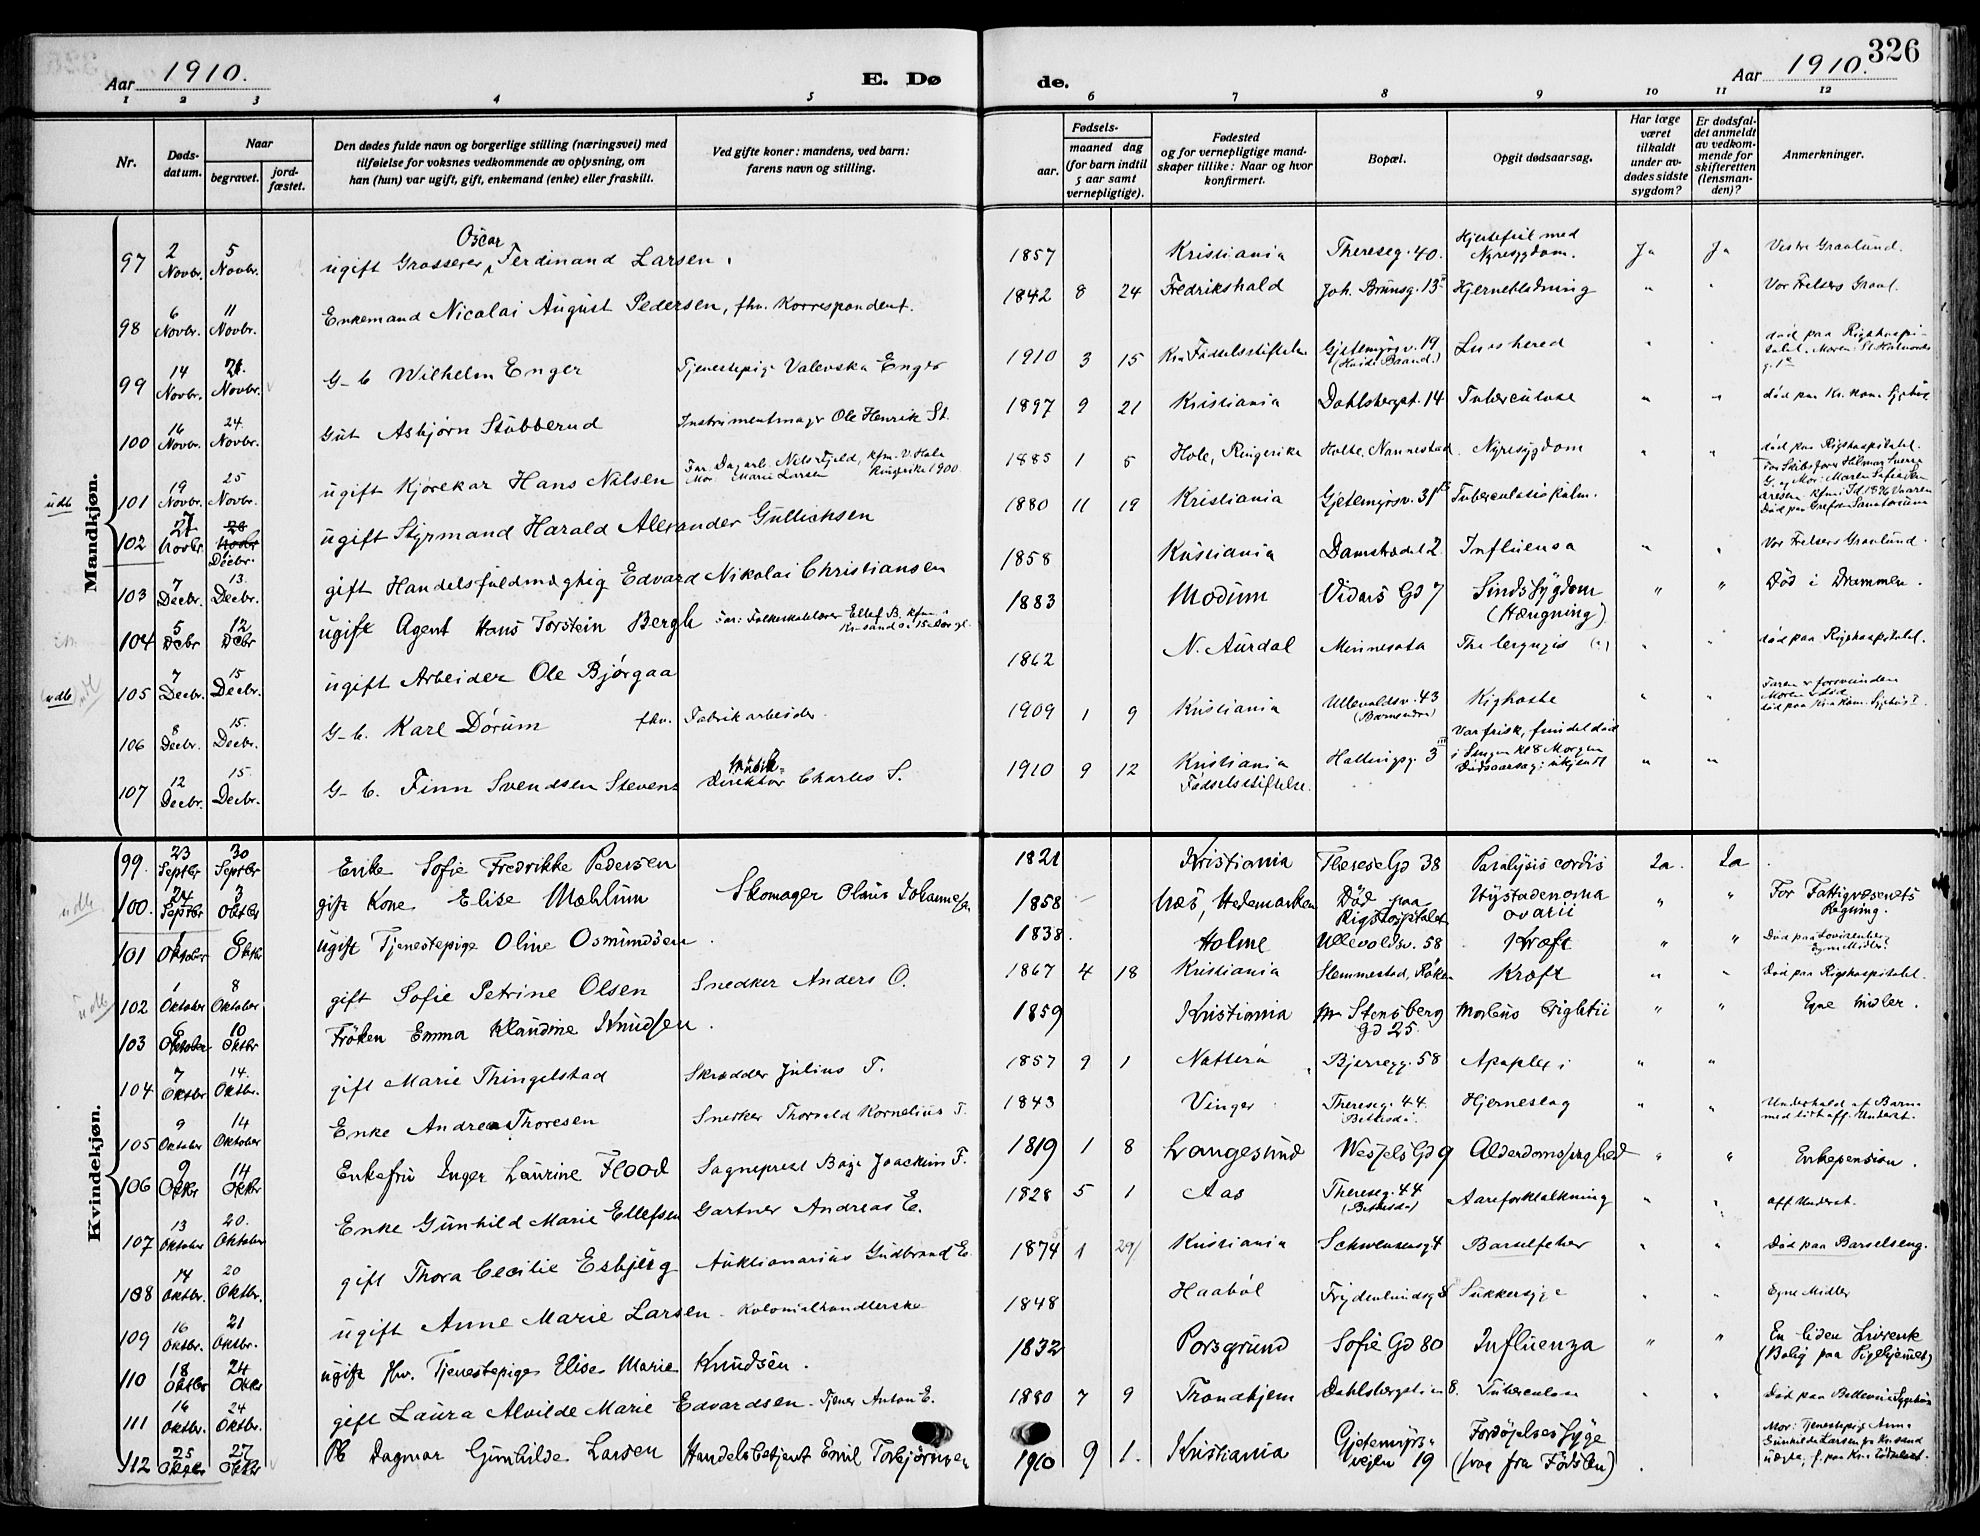 Aar 1910. E. Dø de. Aar 1910. 326
1 2 3 4 5 6 7 8 9 10 11 12
Nr. Døds-datum. Naar begravet. jord-fæstet. Den dødes fulde navn og borgerlige stilling (næringsvei) med tilføielse for voksnes vedkommende av oplysning, om han (hun) var ugift, gift, enkemand (enke) eller fraskilt. Ved gifte koner: mandens, ved barn: farens navn og stilling. Fødsels- aar. maaned dag (for barn indtil 5 aar samt vernepligtige). Fødested og for vernepligtige mand-skaper tillike: Naar og hvor konfirmert. Bopæl. Opgit dødsaarsag. Har læge været tilkaldt under av-dødes sidste sygdom? Er dødsfal-det anmeldt av vedkom-mende for skifteretten (lensman-den)? Anmerkninger.
Mandkjøn.
97 2 Novbr. 5 Novbr. ugift Grosserer Oscar Ferdinand Larsen. 1857 Kristiania Thereseg. 40. Hjertefeil med Nyresygdom. Ja Ja Vestre Gravlund.
98 6 Novbr. 11 Novbr. Enkemand Nicolai August Pedersen, fhv. Korrespondent. 1842 8 24 Fredrikshald Joh. Brunsg. 13 Hjerneblødning " " Vor Frelsers Gravl.
99 14 Novbr. 21. Novbr. G-b. Wilhelm Enger Tjenestepige Valevska Enger 1910 3 15 Kra Fødselsstiftelse Gjetemyrsv. 19 død paa Rigshospitalet.
100 16 Novbr. 24. Novbr. Gut Asbjørn Stubberud Instrumentmager Ole Henrik St. 1897 9 21 Kristiania Dahlsbergst. 14 Tuberculose " " død paa Kr. kom. Sygehus
udb 101 19 Novbr. 25 Novbr. ugift Kjørekar Hans Nilsen Far: Dagarb. Nils Fjeld, kfm. V. Hole Mor: Marie Larsen Ringerike 1900. 1885 1 5 Hole, Ringerike Holte, Nannestad Nyresygdom " " død paa Rigshospitalet.
102 27 Novbr. 28 Novbr Decbr. ugift Styrmand Harald Alexander Gullichsen 1880 11 19 Kristiania Gjetemyrsv. 31 Tuberculosis pulm. Død paa Grefsen Sanatorium
103 7 Decbr. 13. Decbr. gift Handelsfuldmægtig Edvard Nikolai Christiansen 1858 Kristiania Damstrædet 2 Influensa " " Vor Frelsers Gravlund.
104 5 Dcbr 12 Dcbr ugift Agent Hans Torstein Bergh Far: Folkeskolelærer Ellef B. 1883 Modum Vidars Gd 7 Sindssygdom (Hængning) " " Død i Drammen.
(udb) 105 7 Decbr. 15 Decbr. ugift Arbeider Ole Bjørgaa 1862 N. Aurdal Minnesota " " død paa Rigshospitalet.
106 8 Decbr. 15. Decbr. G-b. Karl Dørum fhv. Fabrikarbeider. 1909 1 9 Kristiania Ullevoldsv. 43 Kighoste " " Faren er forsvunden Moren død
107 12 Decbr. 15. Decbr. G-b. Finn Svendsen Stevens Musik-Direktør Charles S. 1910 9 12 Kristiania Fødselsstiftelse. Hallingsg. 3 Var frisk, fundet død i Sengen kl 8 Morgen Dødsaarsag: ukjendt " "
Kvindekjøn.
99. 23 Septbr 30 Septbr Enke Sofie Fredrikke Pedersen 1821 Kristiania Therese Gd 38 Paralysis cordis Ja. Ja.
udb 100. 24 Septbr 3 Oktbr gift Kone Elise Mæhlum Skomager Olaus Johannesen 1858 Næs, Hedemarken Død paa Rigshospitalet Kystadenoma ovarii " " For Fattigvæsenets Regning.
101 1 Oktober 6 Oktbr ugift Tjenestepige Oline Osmundsen. 1838. Holme Ullevoldsv. 58 Kræft " "
udb. 102 1 Oktober 8 Oktober gift Sofie Petrine Olsen Snedker Anders O. 1867 4 18 Kristiania Slemmestad, Røken Kræft " " Død paa Rigshospitalet.
103 6 Oktober 10 Oktbr Frøken Emma Klaudine Knudsen. 1859 Kristiania Stensberg Gd 25. Morbus Brightii " " Egne Midler.
104 7 Oktbr. 14. Oktbr. gift Marie Thingelstad Skrædder Julius T. 1857 9 1 Nøtterø Bjerregg. 58 Apoplexi " "
105 9 Oktober 14 Oktober Enke Andrea Thoresen Snedker Thorvald Kornelius T. 1843 Vinger Thereseg. 44. Bethesda. Hjerneslag " " Underholdt af Børn med lidt off. Underst.
106 9 Oktbr 14 Oktbr Enkefru Inger Laurine Flood Sogneprest Joachim F. 1819 1 8 Langesund Wessels Gd 9 Alderdomssvaghed " " Enkepension.
107 13 Oktober 20. Oktober Enke Gunhild Marie Ellefsen Gartner Andreas E. 1828 5 1 Aas Thereseg. 44 (Bethesda) Aareforkalkning " " off. Underst.
108 14 Oktbr. 20 Oktbr. gift Thora Cecilie Esbjerg Auktionarius Gudbrand E. 1874 1 29/ Kristiania Schwensensg 4 Barselfeber " " Død paa Barselseng.
109 16 Oktbr. 21 Oktbr. ugift Anne Marie Larsen. Kolonialhandlerske 1848 Haabøl Frydenlundsg 8 Sukkersyge " " Egne Midler
110 18 Oktbr 24 Oktbr ugift fhv. Tjenestepige Elise Marie Knudsen. 1832 Porsgrund Sofie Gd 80 Influenza " " En liden Livrente (Bolig paa Pigehjemmet)
111 16 Oktbr. 24 Oktbr. gift Laura Alvilde Marie Edvardsen. Tjener Anton E. 1880 7 9 Trondhjem Dahlsbergstien 8. Tuberculose " " Død paa Bellevue Sygehus
112 25 Oktbr 27 Oktbr Pb Dagmar Gunhilde Larsen Handelsbetjent Emil Torbjørnsen 1910 9 1. Kristiania Gjetemyrs-veien 19 Fordøielsessyge (svag fra Fødslen) Mor: Tjenestepig Anna Gunhilde Larsen